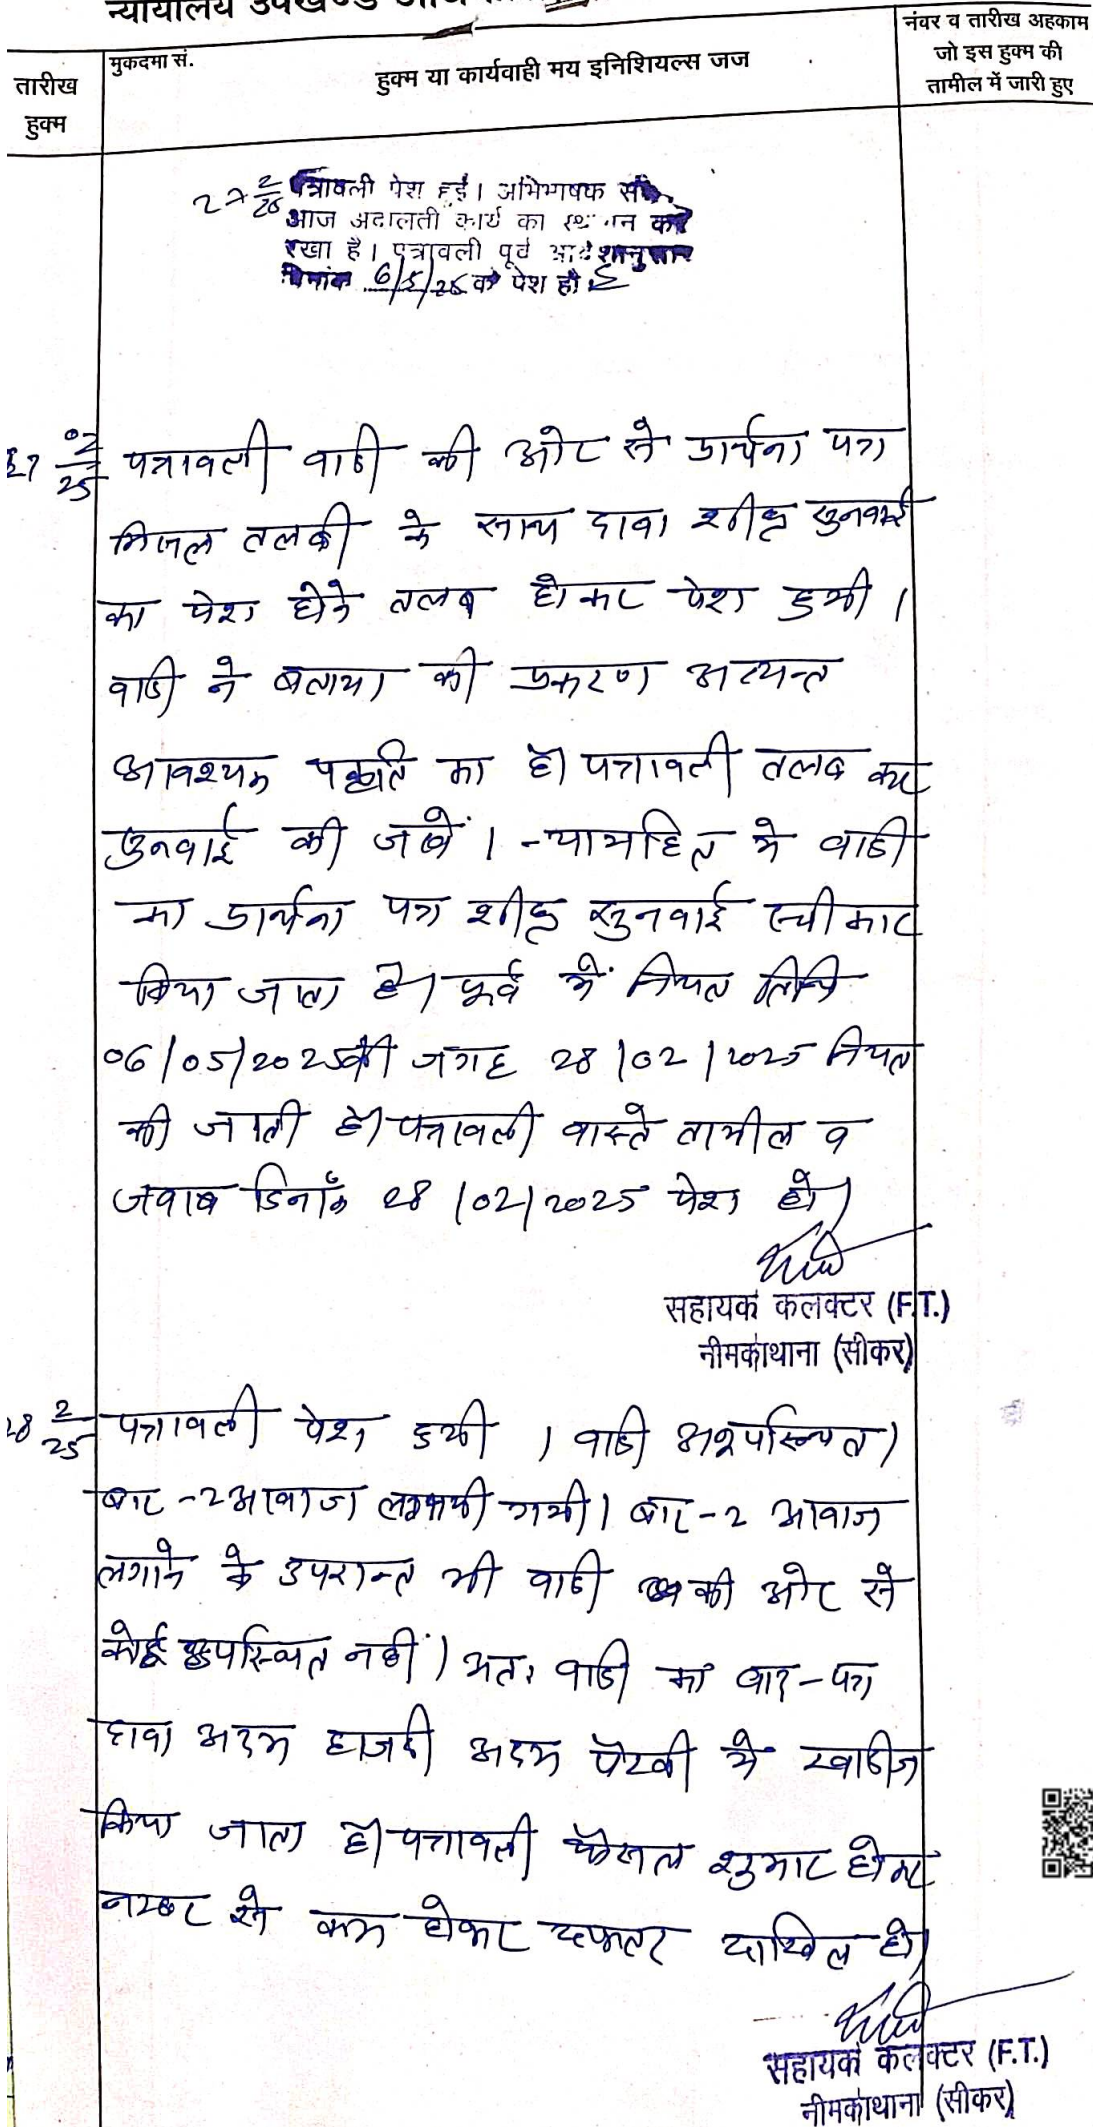 न्यायालय उपखण्ड
तारीख हुक्म
मुकदमा सं.
हुक्म या कार्यवाही मय इनिशियल्स जज
नंबर व तारीख अहकाम
जो इस हुक्म की
तामील में जारी हुए
27 2/25 पत्रावली पेश हुई। अभिभाषक
आज अदालती कार्य का स्थगन कर
रखा है। पत्रावली पूर्व आदेशानुसार
दिनांक 6/5/25 को पेश हो।
27 02/25 पत्रावली वादी की ओर से प्रार्थना पत्र
मिजल तलबी के साथ दावा शीघ्र सुनवाई
का पेश होने तलब होकर पेश हुयी।
वादी ने बताया की प्रकरण अत्यन्त
आवश्यक पद्धति का है। पत्रावली तलब कर
सुनवाई की जावें। न्यायहित मे वादी
का प्रार्थना पत्र शीघ्र सुनवाई स्वीकार
किया जाता है। पूर्व में नियत तिथि
06/05/2025 की जगह 28/02/2025 नियत
की जाती है। पत्रावली वास्ते तामील व
जवाब दिनाँक 28/02/2025 पेश हो।
सहायक कलक्टर (F.T.)
नीमकाथाना (सीकर)
28 2/25 पत्रावली पेश हुयी। वादी अनुपस्थित।
बार-2 आवाज लगायी गयी। बार-2 आवाज
लगाने के उपरान्त भी वादी की ओर से
कोई उपस्थित नहीं। अतः वादी का वाद-पत्र
दावा अदम हाजरी अदम पैरवी मे खारीज
किया जाता है। पत्रावली फैसल शुमार होकर
नम्बर से कम होकर दफ्तर दाखिल हो।
सहायक कलक्टर (F.T.)
नीमकाथाना (सीकर)